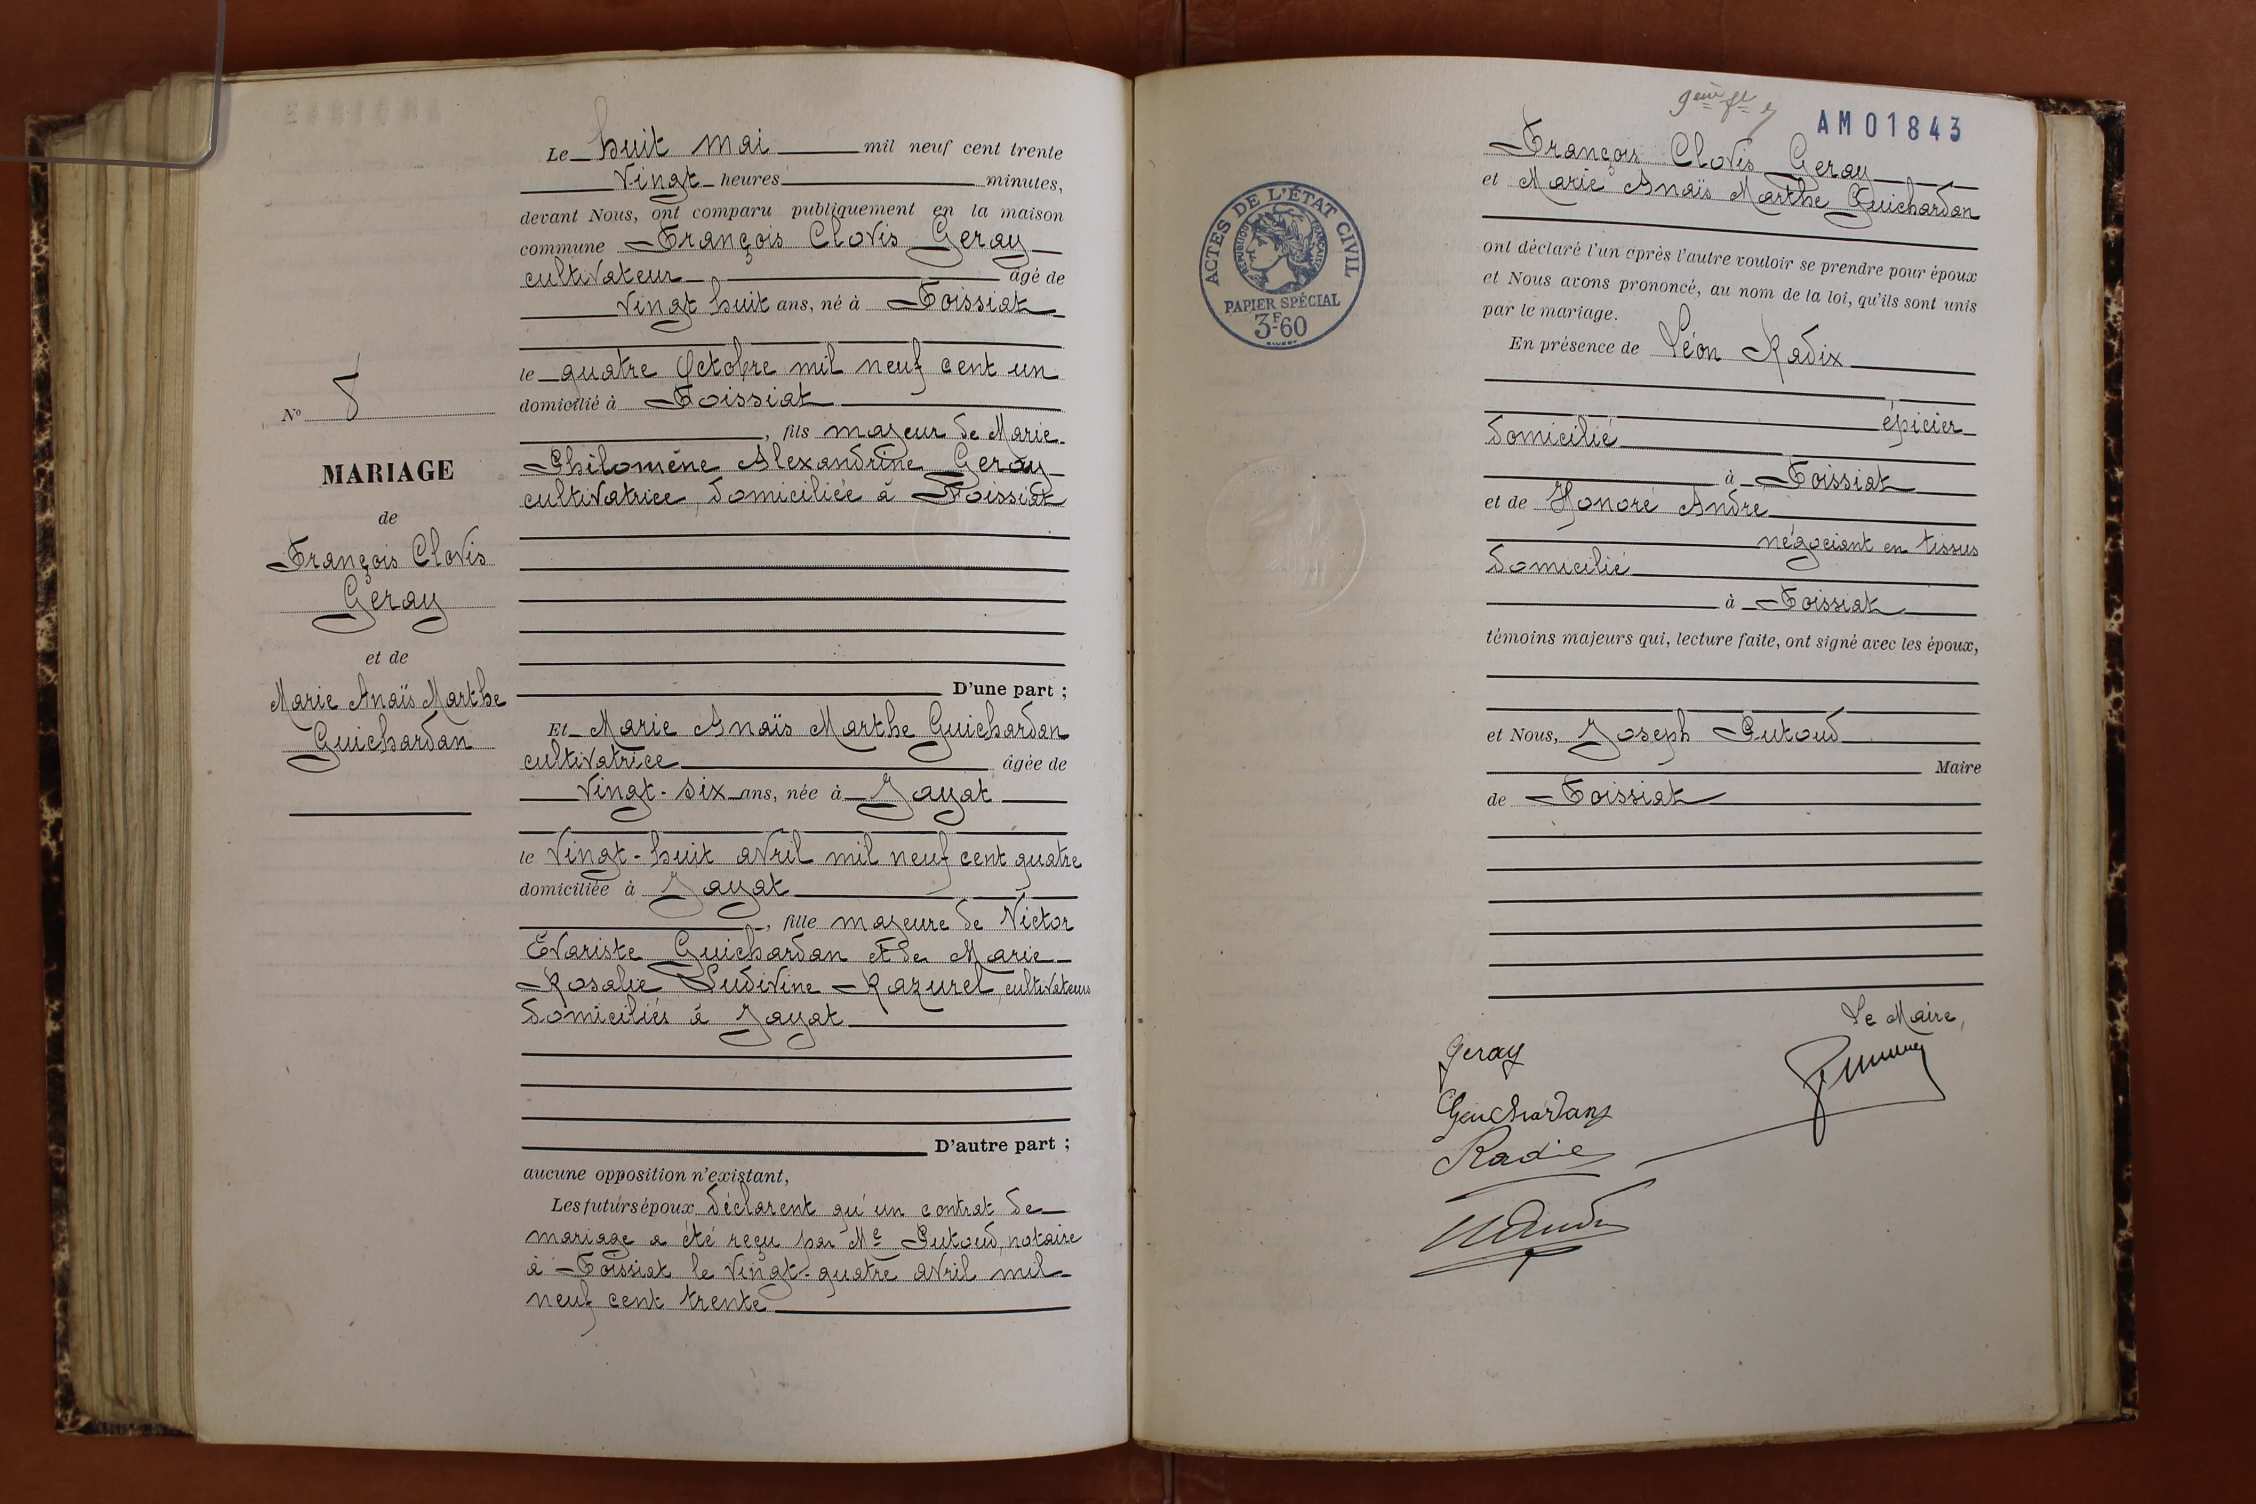 Le huit mai mil neuf cent trente
vingt heures minutes,
devant Nous, ont comparu publiquement en la maison
commune François Clovis Geray
cultivateur âgé de
vingt huit ans, né à Foissiat
le quatre Octobre mil neuf cent un
domicilié à Foissiat
, fils majeur de Marie
Philomène Alexandrine Geray
cultivatrice, domiciliée à Foissiat
D'une part ;
Et Marie Anaïs Marthe Guichardan
cultivatrice âgée de
vingt-six ans, née à Jayat
le vingt-huit avril mil neuf cent quatre
domiciliée à Jayat
, fille majeure de Victor
Evariste Guichardan et de Marie
Rosalie Ludivine Razurel, cultivateurs
domiciliés à Jayat
D'autre part ;
aucune opposition n'existant,
Les futurs époux déclarent qu'un contrat de
mariage a été reçu par Me Putoud, notaire
à Foissiat le vingt-quatre avril mil
neuf cent trente
No 8
MARIAGE
de
François Clovis
Geray
et de
Marie Anaïs Marthe
Guichardan
9eme
AM01843
ACTES DE L'ÉTAT CIVIL
RÉPUBLIQUE FRANÇAISE
PAPIER SPÉCIAL
3F60
François Clovis Geray
et Marie Anaïs Marthe Guichardan
ont déclaré l'un après l'autre vouloir se prendre pour époux
et Nous avons prononcé, au nom de la loi, qu'ils sont unis
par le mariage.
En présence de Léon Radix
épicier
domicilié
à Foissiat
et de Honoré André
négociant en tissus
domicilié
à Foissiat
témoins majeurs qui, lecture faite, ont signé avec les époux,
et Nous, Joseph Putoud
Maire
de Foissiat
Le Maire,
Geray
Guichardan
Radix